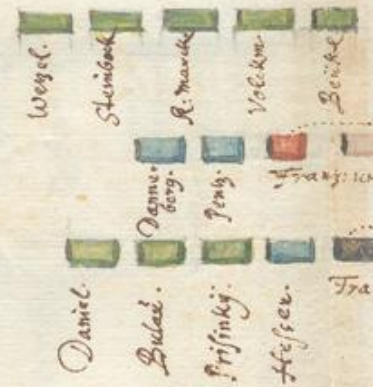 Wenzel.
Steinbock
R: marck
Volckm.
Danne-
berg.
Pentz.
Daniel.
Bulaé.
Prisinký.
Hesser.
Tra